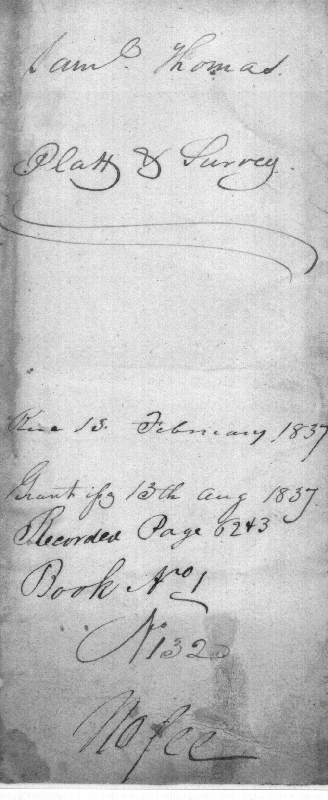 Saml. Thomas.
Platt & Survey.
13. February 1837
Grant 13th Aug 1837
Recorded Page 6243
Book No 1
No 132
No fee